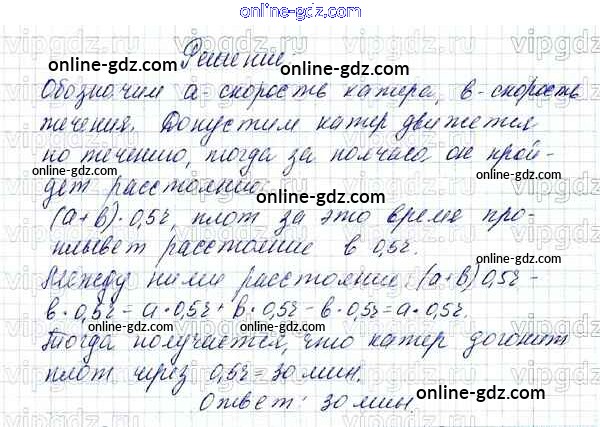 online-gdz.com
Решение
online-gdz.com
Обозначим a - скорость катера, в - скорость
течения. Допустим катер движется
online-gdz.com
по течению, тогда за полчаса он прой-
дет расстояние:
online-gdz.com
(a+в)·0,5ч, плот за это время про-
online-gdz.com
плывет расстояние в 0,5ч.
Между ними расстояние: (a+в)0,5ч -
в·0,5ч = a·0,5ч + в·0,5ч - в·0,5ч = a·0,5ч.
online-gdz.com online-gdz.com
Тогда получается, что катер догонит
плот чiрiз 0,5ч = 30 мин.
online-gdz.com
Ответ: 30 мин.
online-gdz.com